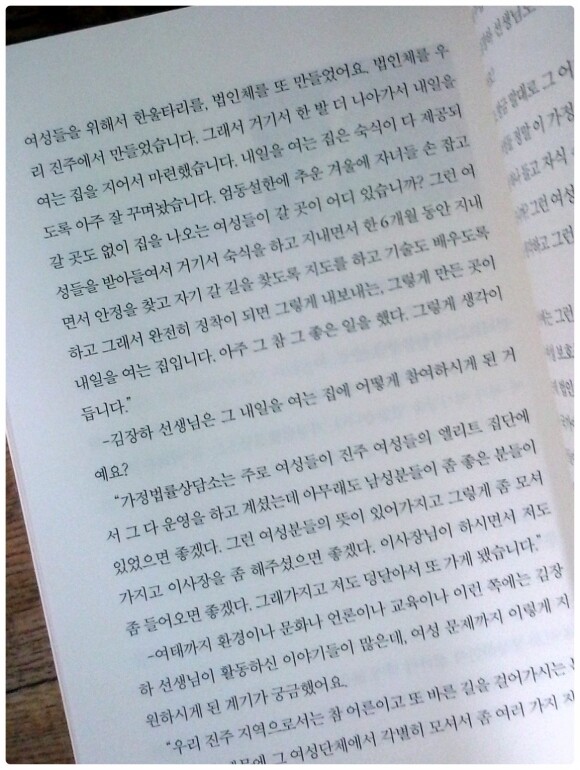 여성들을 위해서 한울타리를, 법인체를 또 만들었어요. 법인체를 우
리 진주에서 만들었습니다. 그래서 거기서 한 발 더 나아가서 내일을
여는 집을 지어서 마련했습니다. 내일을 여는 집은 숙식이 다 제공되
도록 아주 잘 꾸며놨습니다. 엄동설한에 추운 겨울에 자녀들 손 잡고
갈 곳도 없이 집을 나오는 여성들이 갈 곳이 어디 있습니까? 그런 여
성들을 받아들여서 거기서 숙식을 하고 지내면서 한 6개월 동안 지내
면서 안정을 찾고 자기 갈 길을 찾도록 지도를 하고 기술도 배우도록
하고 그래서 완전히 정착이 되면 그렇게 내보내는, 그렇게 만든 곳이
내일을 여는 집입니다. 아주 그 참 그 좋은 일을 했다. 그렇게 생각이
듭니다.”
-김장하 선생님은 그 내일을 여는 집에 어떻게 참여하시게 된 거
예요?
“가정법률상담소는 주로 여성들이 진주 여성들의 엘리트 집단에
서 그 다 운영을 하고 계셨는데 아무래도 남성분들이 좀 좋은 분들이
있었으면 좋겠다. 그런 여성분들의 뜻이 있어가지고 그렇게 좀 모셔
가지고 이사장을 좀 해주셨으면 좋겠다. 이사장님이 하시면서 저도
좀 들어오면 좋겠다. 그래가지고 저도 덩달아서 또 가게 됐습니다.”
-여태까지 환경이나 문화나 언론이나 교육이나 이런 쪽에는 김장
하 선생님이 활동하신 이야기들이 많은데, 여성 문제까지 이렇게 지
원하시게 된 계기가 궁금했어요.
“우리 진주 지역으로서는 참 어른이고 또 바른 길을 걸어가시는
그 여성단체에서 각별히 모셔서 좀 여러 가지